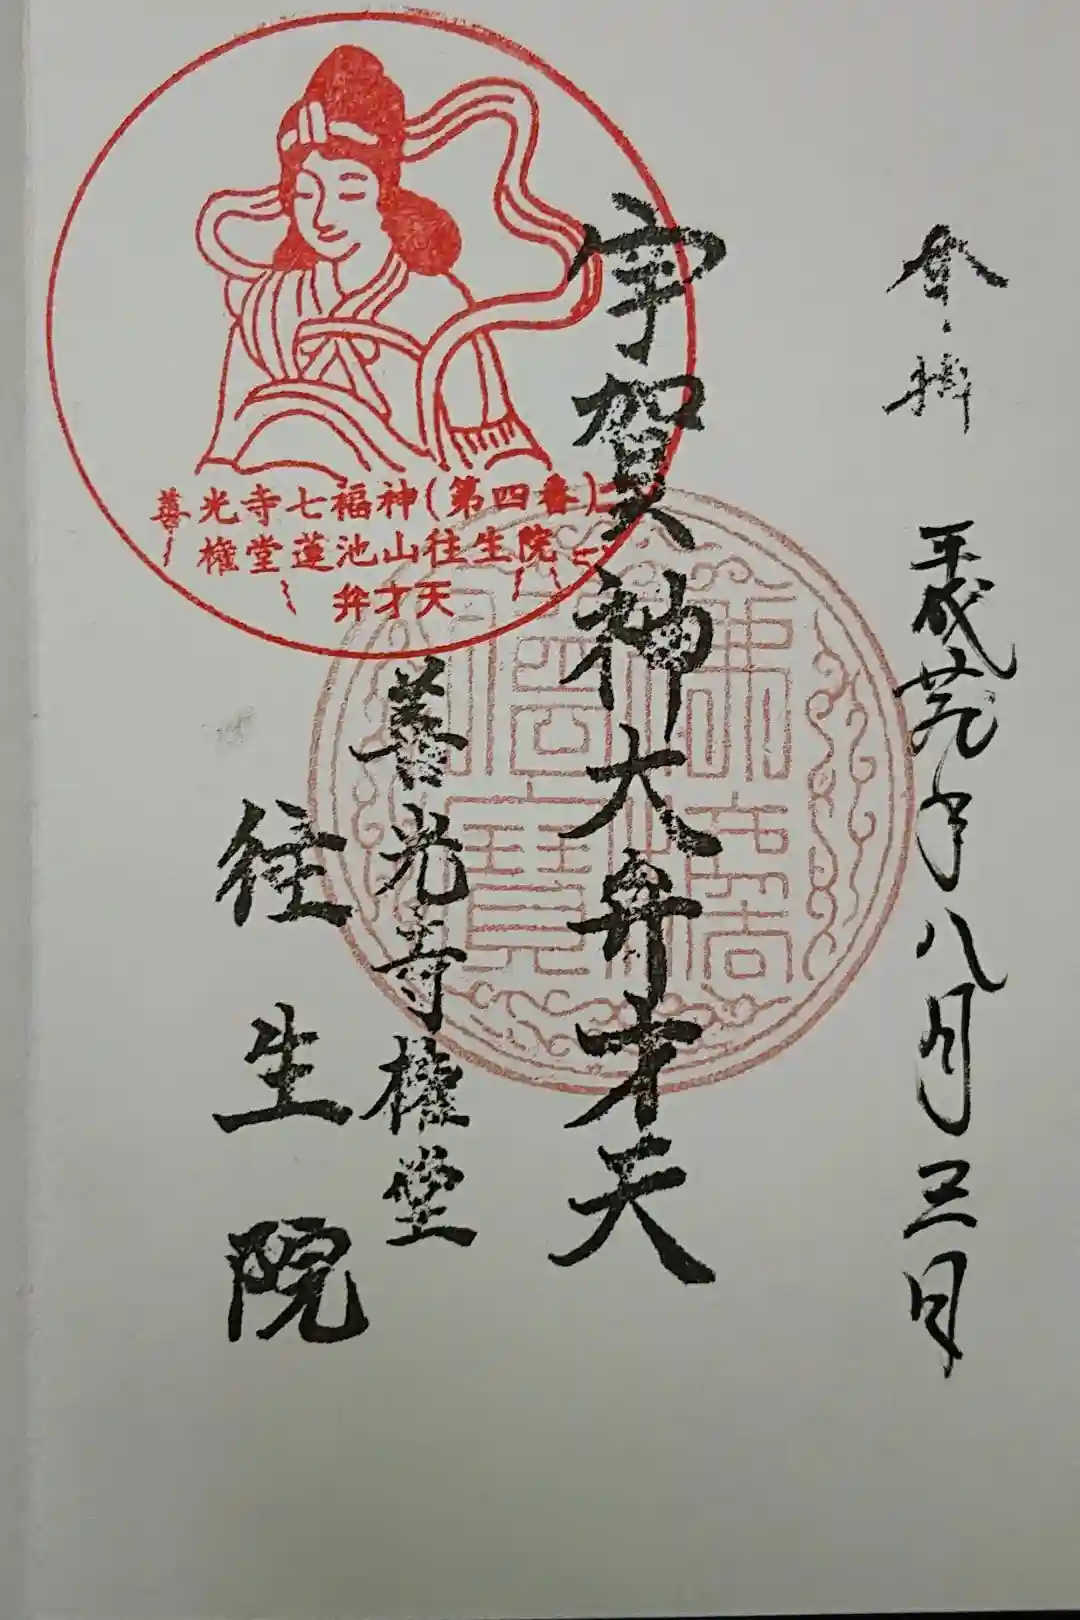 奉拝 平成廿九年八月三日
宇賀神大弁才天
善光寺権堂
往生院
善光寺七福神(第四番)
権堂蓮池山往生院
弁才天